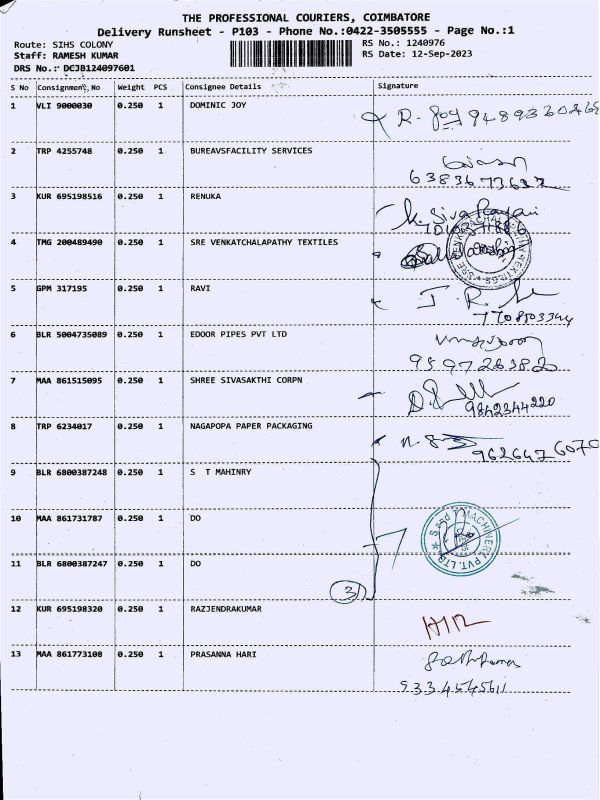 THE PROFESSIONAL COURIERS, COIMBATORE
Delivery Runsheet - P103 - Phone No.:0422-3505555 - Page No.:1
Route: SIHS COLONY RS No.: 1240976
Staff: RAMESH KUMAR RS Date: 12-Sep-2023
DRS No.: DCJB124097601
S No Consignment No Weight PCS Consignee Details Signature
1 VLI 9000030 0.250 1 DOMINIC JOY
2 TRP 4255748 0.250 1 BUREAVSFACILITY SERVICES
3 KUR 695198516 0.250 1 RENUKA
4 TMG 200489490 0.250 1 SRE VENKATCHALAPATHY TEXTILES
5 GPM 317195 0.250 1 RAVI
6 BLR 5004735089 0.250 1 EDOOR PIPES PVT LTD
7 MAA 861515095 0.250 1 SHREE SIVASAKTHI CORPN
9842344220
8 TRP 6234017 0.250 1 NAGAPOPA PAPER PACKAGING
9626476070
9 BLR 6800387248 0.250 1 S T MAHINRY
10 MAA 861731787 0.250 1 DO
11 BLR 6800387247 0.250 1 DO
3
12 KUR 695198320 0.250 1 RAZJENDRAKUMAR
13 MAA 861773108 0.250 1 PRASANNA HARI